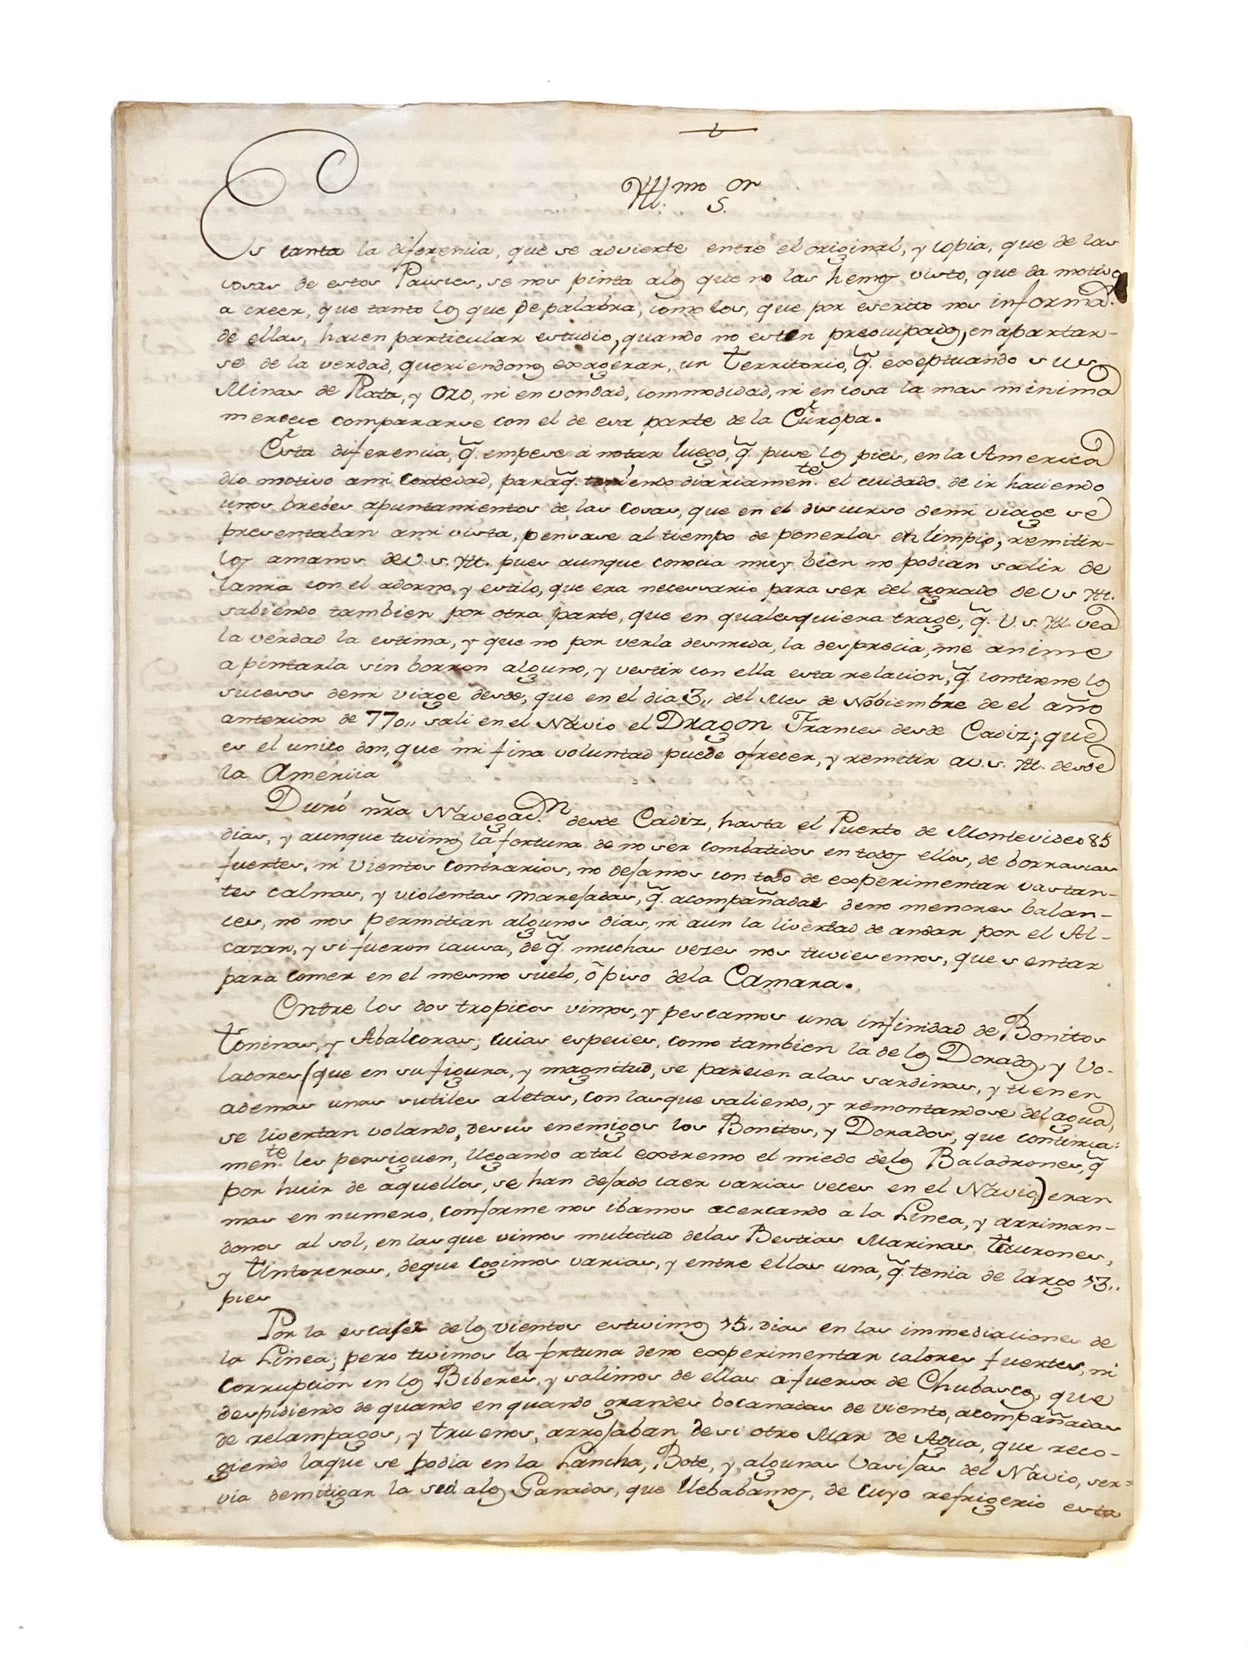 Yll.mo S.or
Es tanta la diferencia, que se advierte entre el original, y copia, que de las
cosas de estos Payses, se nos pinta a los que no las hemos visto, que da motivo
a creer, que tanto los que de palabra, como los, que por escrito nos informan
de ellas, hacen particular estudio, quando no esten preocupados, en apartar-
se de la verdad, queriendonos exagerar, un Territorio, q.e exeptuando sus
Minas de Plata, y oro, ni en vondad, commodidad, ni en cosa la mas minima
merece compararse con el de esa parte de la Europa.
Esta diferencia, q.e empese a notar luego, q.e puse los pies, en la America
dio motivo ami cortedad, paraq.e teniendo diariamen.te el cuidado, de ir haciendo
unos brebes apuntamientos de las cosas, que en el discurso demi viage se
presentaban ami vista, pensase al tiempo de ponerlos en limpio, remitir-
los amanos de V. S. Yll. pues aunque conocia muy bien no podian salir de
lamia con el adorno, y estilo, que era necessario para ser del agrado de V S Yll.
sabiendo tambien por otra parte, que en qualesquiera trage, q.e V. S. Yll vea
la verdad la estima, y que no por verla desnuda, la desprecia, me anime
a pintarla sin borron alguno, y vestir con ella esta relacion, q.e contiene los
sucesos demi viage desde, que en el dia 3,, del Mes de Nobiembre de el año
anterior de 770,, sali en el Návio el Dragon Frances desde Cadiz; que
es el unico don, que mi fina voluntad puede ofrecer, y remitir a V. S. Yll. desde
la America
Duró nra Navegac.n desde Cadiz, hasta el Puerto de Montevideo 85
dias, y aunque tuvimos la fortuna de no ser combatidos en todos ellos, de borrascas
fuertes, ni vientos contrarios, no dejamos con todo de experimentar vastan-
tes calmas, y violentas marejadas, q.e acompañadas deno menores balan-
ces, no nos permitian algunos dias, ni aun la livertad de andar por el Al-
cazar, y si fueron causa, de q.e muchas vezes nos tuviesemos, que sentar
para comer en el mesmo suelo, ó piso dela Camara.
Entre los dos tropicos vimos, y pescamos una infinidad de Bonitos
Toninas, y Abalcoras; cuias especies, como tambien la de los Dorados, y Vo-
ladores (que en su figura, y magnitud, se parecen alas sardinas, y tienen
ademas unas sutiles aletas, con las que saliendo, y remontandose del agua,
se livertan volando, desus enemigos los Bonitos, y Dorados, que continua-
men.te les persiguen, llegando atal extremo el miedo delos Baladrones, q.e
por huir de aquellos, se han dejado caer varias veces en el Navio) eran
mas en numero, conforme nos ibamos acercando a la Linea, y arriman-
donos al sol, en las que vimos multitud delas Bestias Marinas Taurones,
y Tintoreras, deque cogimos varias, y entre ellas una, q.e tenia de largo 13,,
pies
Por la escasez delos vientos estuvimos 15,, dias en las immediaciones de
la Linea; pero tuvimos la fortuna deno experimentar calores fuertes, ni
corrupcion en los Biberes, y salimos de ellas a fuersa de Chubascos, que
despidiendo de quando en quando grandes bocanadas de viento, acompañadas
de relampagos, y truenos, arrojaban desi otro Mar de Agua, que reco-
giendo laque se podia en la Lancha, Bote, y algunas vasijas del Návio, ser-
via demitigar la sed alos Ganados, que llebabamos, de cuyo refrigerio esta